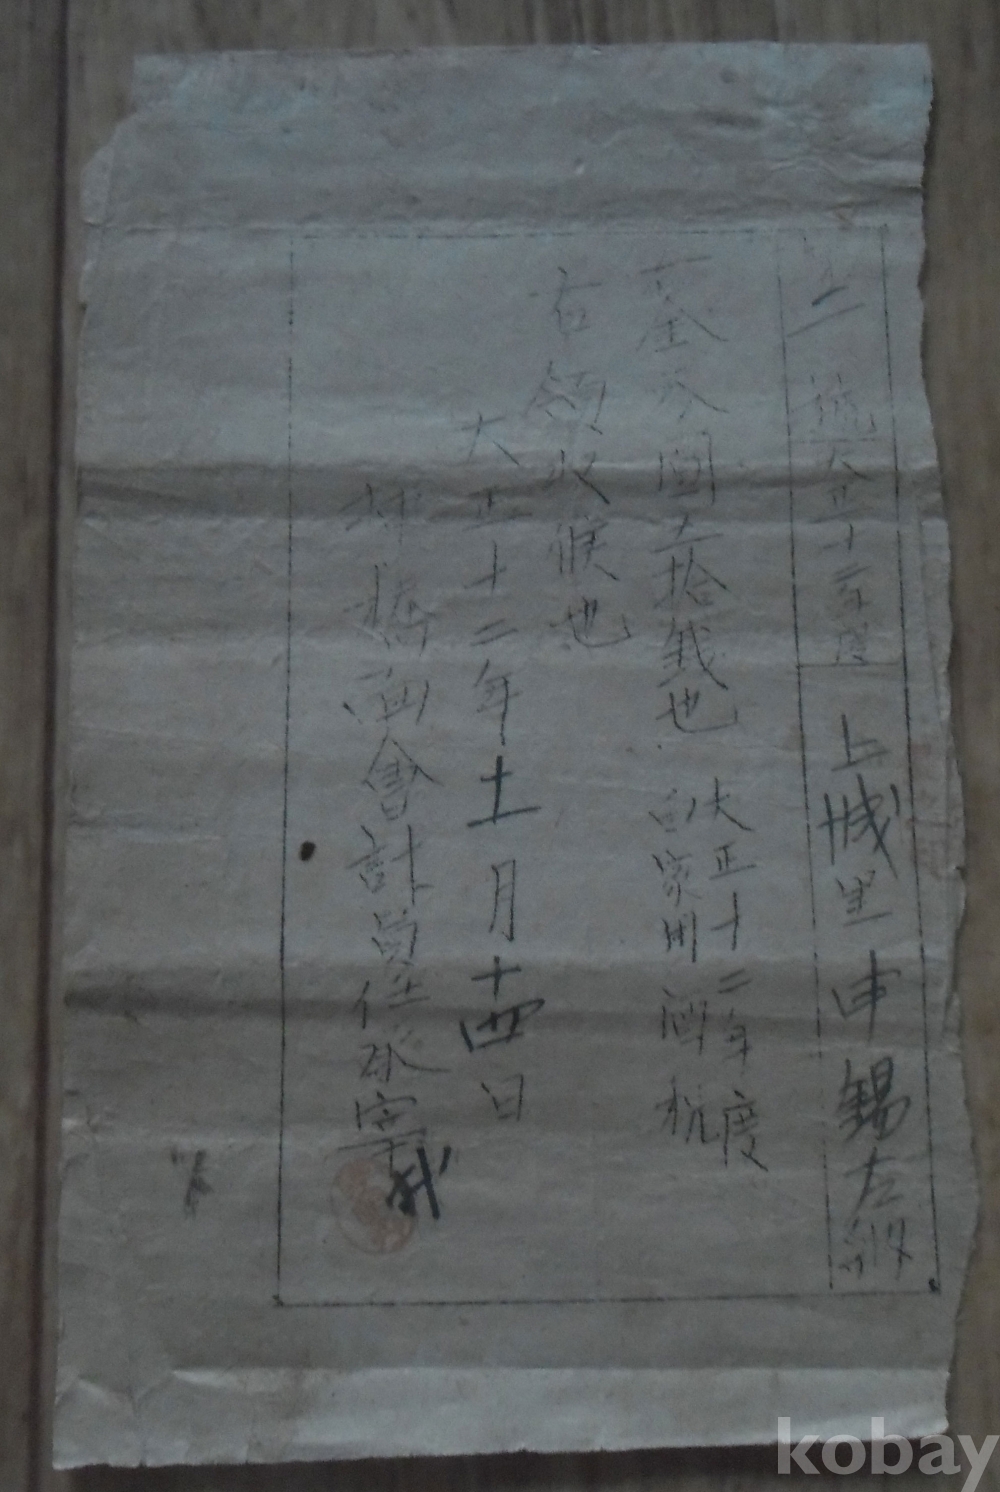 號 大正十二年度 上城里 申錫左納
一金參圓五拾戔也 大正十二年度
自家用酒稅
右領收候也
大正十二年十一月十四日
面會計員任承宰
kobay